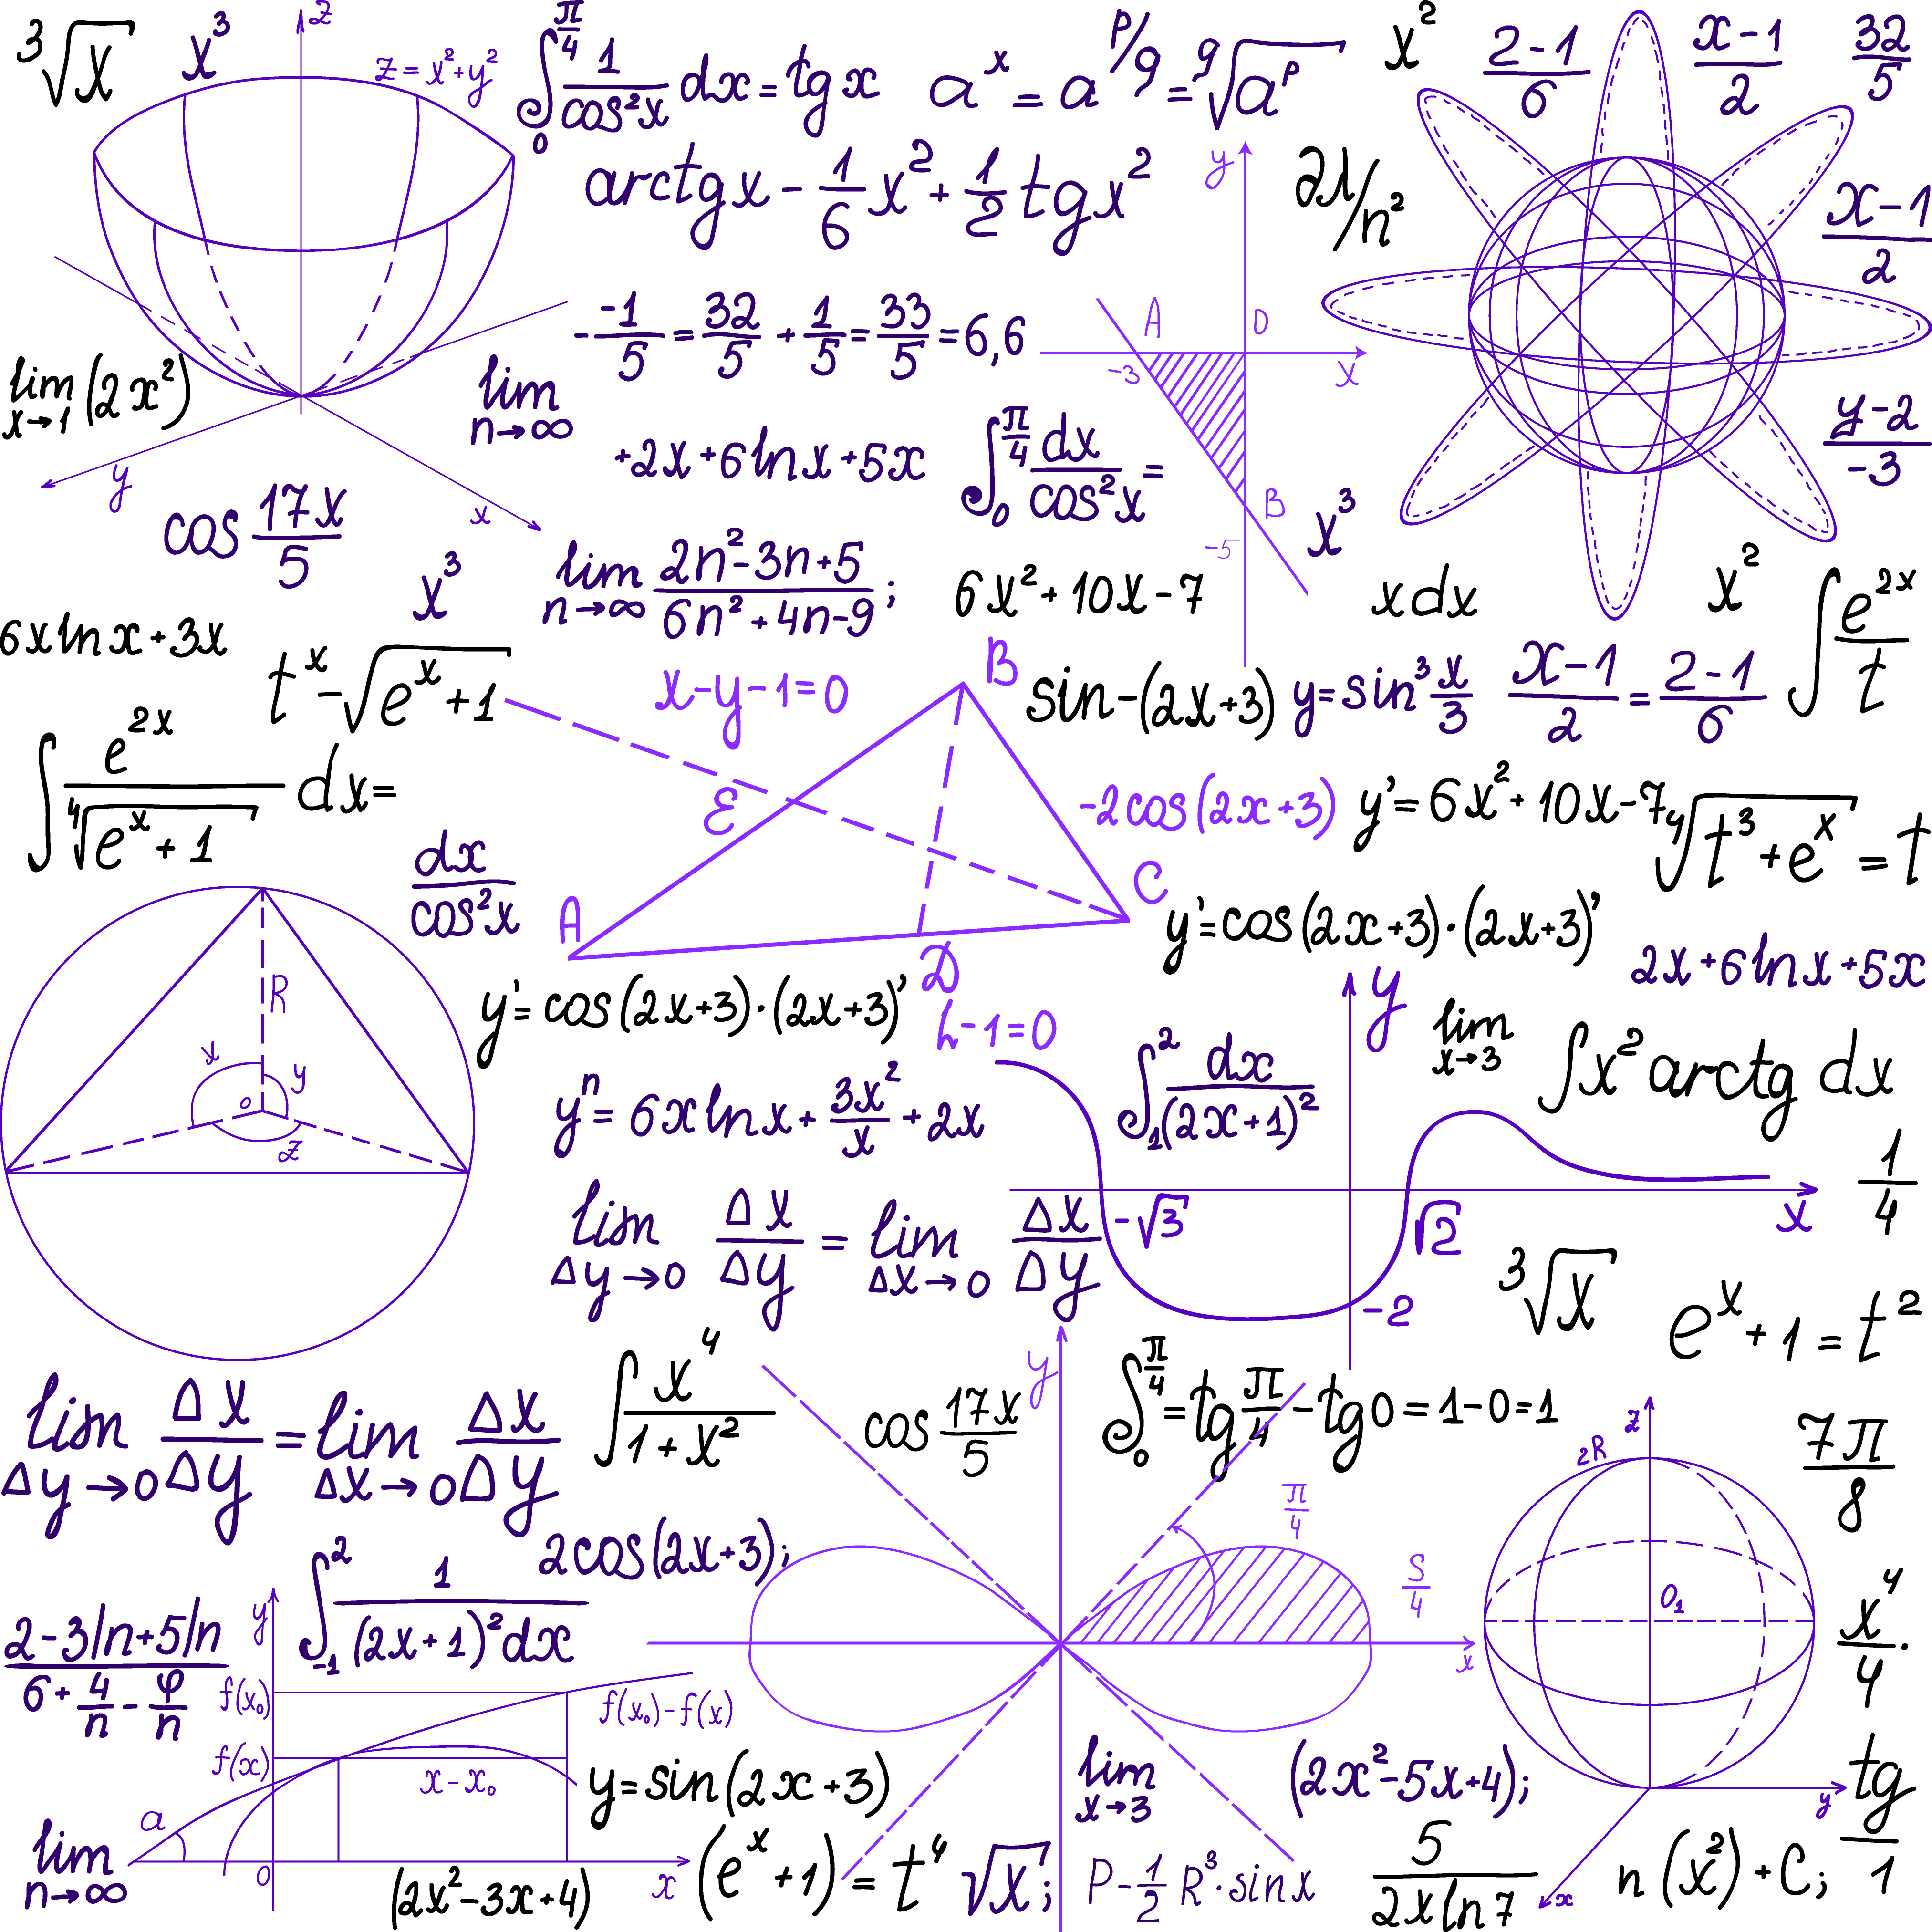 ³√x
x³
z
z = x²+y²
∫₀^(π/4) 1/cos²x dx = tg x
aˣ = a^(p/q) = ^q√(aᵖ)
x²
2-1/6
x-1/2
32/5
arctg x - 1/6 x² + 1/2 tg x²
y
2λ/n²
x-1/2
- -1/5 = 32/5 + 1/5 = 33/5 = 6,6
A
0
-3
x
lim x→1 (2x²)
lim n→∞
+2x+6lnx+5x
∫₀^(π/4) dx/cos²x =
B
-5
x³
y-2/-3
y
x
cos 17x/5
x³
lim n→∞ 2n²-3n+5/6n²+4n-9;
6x²+10x-7
xdx
x²
∫ e²ˣ/t
6xlnx+3x
tˣ-√(eˣ+1)
x-y-1=0
B
sin-(2x+3)
y=sin³ x/3
x-1/2 = 2-1/6
∫ e²ˣ/⁴√(eˣ+1) dx=
E
-2cos(2x+3)
y'=6x²+10x-7
⁴√(t³+eˣ) = t
dx/cos²x
A
C
D
y'=cos(2x+3)·(2x+3)'
2x+6lnx+5x
R
x
y
o
z
y'=cos(2x+3)·(2x+3)'
h-1=0
y
lim x→3
∫x² arctg dx
yⁿ= 6xlnx+ 3x²/x +2x
∫₁² dx/(2x+1)²
1/4
lim Δy→0 Δx/Δy = lim Δx→0 Δx/Δy
-√3
√2
x
-2
³√x
eˣ+1=t²
lim Δy→0 Δx/Δy = lim Δx→0 Δx/Δy
∫ x⁴/1+x²
cos 17x/5
y
∫₀^(π/4) =tg π/4 -tg0=1-0=1
z
2R
7π/8
π/4
S/4
2cos(2x+3);
∫₋₁² 1/(2x+1)²dx
O₁
x⁴/4·
x
2-3/n+5/n/6+4/n-φ/n
y
f(x₀)
f(x₀)-f(x)
f(x)
x-x₀
a
0
x
lim n→∞
(2x²-3x+4)
y=sin(2x+3)
(eˣ+1)=t⁴
√x;
lim x→3
(2x²-5x+4);
P-1/2 R³·sinx
5/2xln7
y
x
n(x²)+C;
tg/1